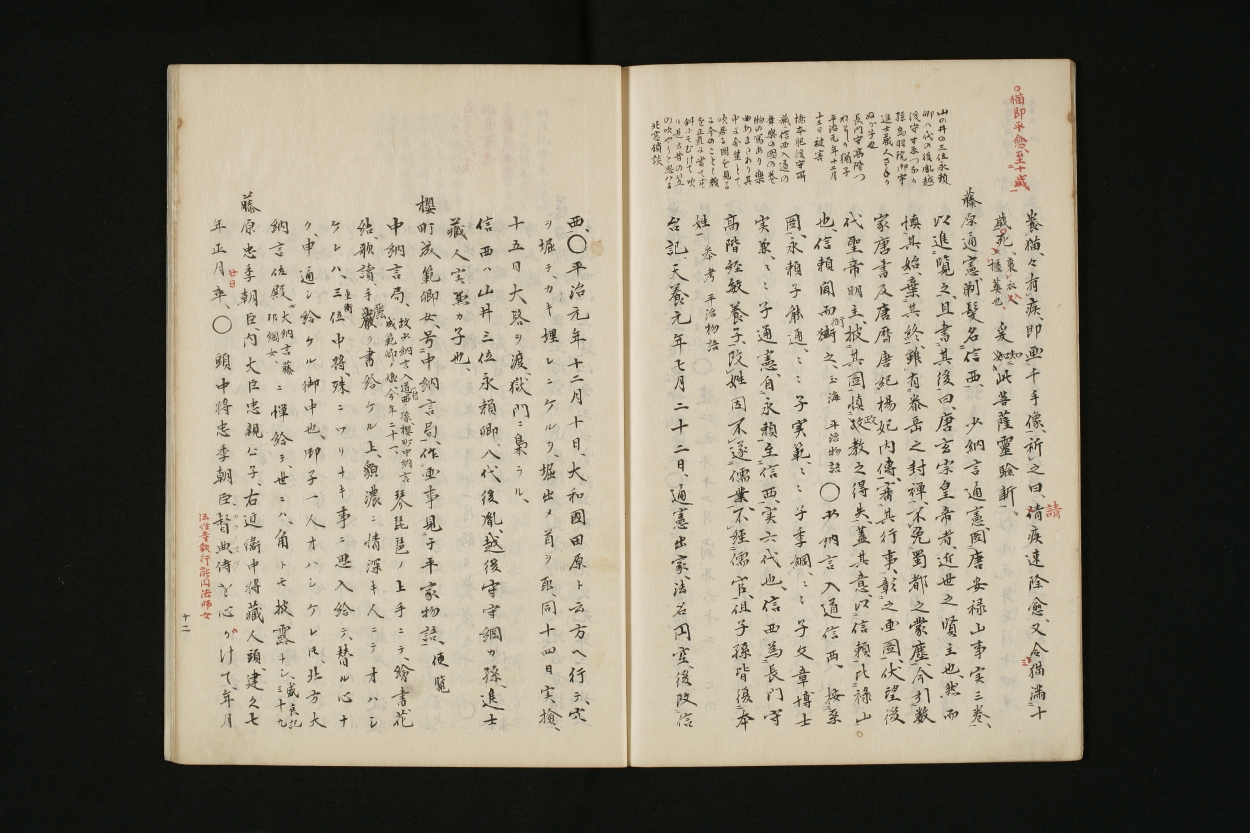 ○猫即平愈、至十歳
養猫、々有疾、即画千手像、祈之曰、請疾速除愈、又令猫満十
歳死、裹衣入櫃葬也、爰知此菩薩霊験新、
藤原通憲剃髪名信西、少納言通憲図唐安禄山事実三巻、
以進覧之、且書其後曰、唐玄宗皇帝者、近世之賢主也、然而
慎其始、棄其終、雖有泰岳之封禅、不免蜀都之蒙塵、今引数
家唐書及唐暦唐妃楊妃内伝、審其行事、彰之画図、伏望後
代聖帝明主、披其図、慎政教之得失、蓋其意、以信頼比禄山
也、信頼聞而銜之、玉海 平治物語 ○少納言入道信西、按系
図、永頼子能通、ミミ子実範、ミミ子季綱、ミミ子文章博士
実兼、ミミ子通憲、自永頼至信西、実六代也、信西為長門守
高階経敏養子、改姓、因不遂儒業、不経儒官、但子孫皆復本
姓 参考平治物語
台記、天養元年七月二十二日、通憲出家、法名円空、後改信
山の井の三位永頼
卿八代の後胤越
後守すゑつなか
孫鳥羽院御宇
進士蔵人さねか
ぬか子也
長門守高階つ
平治元年十二月
十三日被害
橋本肥後守所
蔵信西入道の
舞楽の図の巻
物の写あり楽
由あまたあり其
中に今笙とて
吹居る図を見る
北窓瑣談
西、○平治元年十二月十日、大和国田原ト云方ヘ行テ、穴
ヲ堀テ、カキ埋レニケルヲ、堀出タ首ヲ取、同十四日実検、
十五日大路ヲ渡獄門ニ梟ラル、
信西ハ山井三位永頼卿八代後胤、越後守季綱カ孫、進士
蔵人実兼カ子也、
桜町成範卿女、号中納言局、作画事見于平家物語、便覧
中納言局、故少納言入道信西孫桜町中納言成範卿ノ娘、今年二十二、琴琵琶ノ上手ニテ、絵書花
結歌読、手厳ク書給ケル上、貌濃ニ情深キ人ニテオハシ
ケレハ、三位中将殊ニワリナキ事ニ思入給テ、替ル心ナ
ク、申通シ給ケル御中也、御子一人オハシケレ𪜈、北方大
納言佐殿、大納言藤邦綱女、ニ憚給テ世ニハ、角トモ披露ナシ、盛衰記三十九
藤原忠季朝臣、内大臣忠親公子、右近衛中将蔵人頭、建久七
年正月廿日卒、○頭中将忠季朝臣、督典侍を心かけて、年月
法性寺執行能円法師女
十二